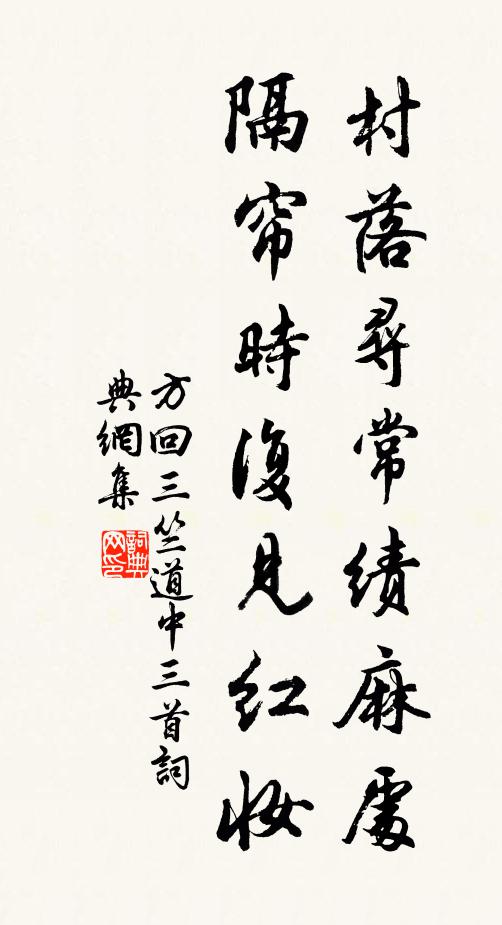 村落尋常績麻處
隔帘時復見紅妝
方回三竺道中三首詞
典網集
詞典
网印